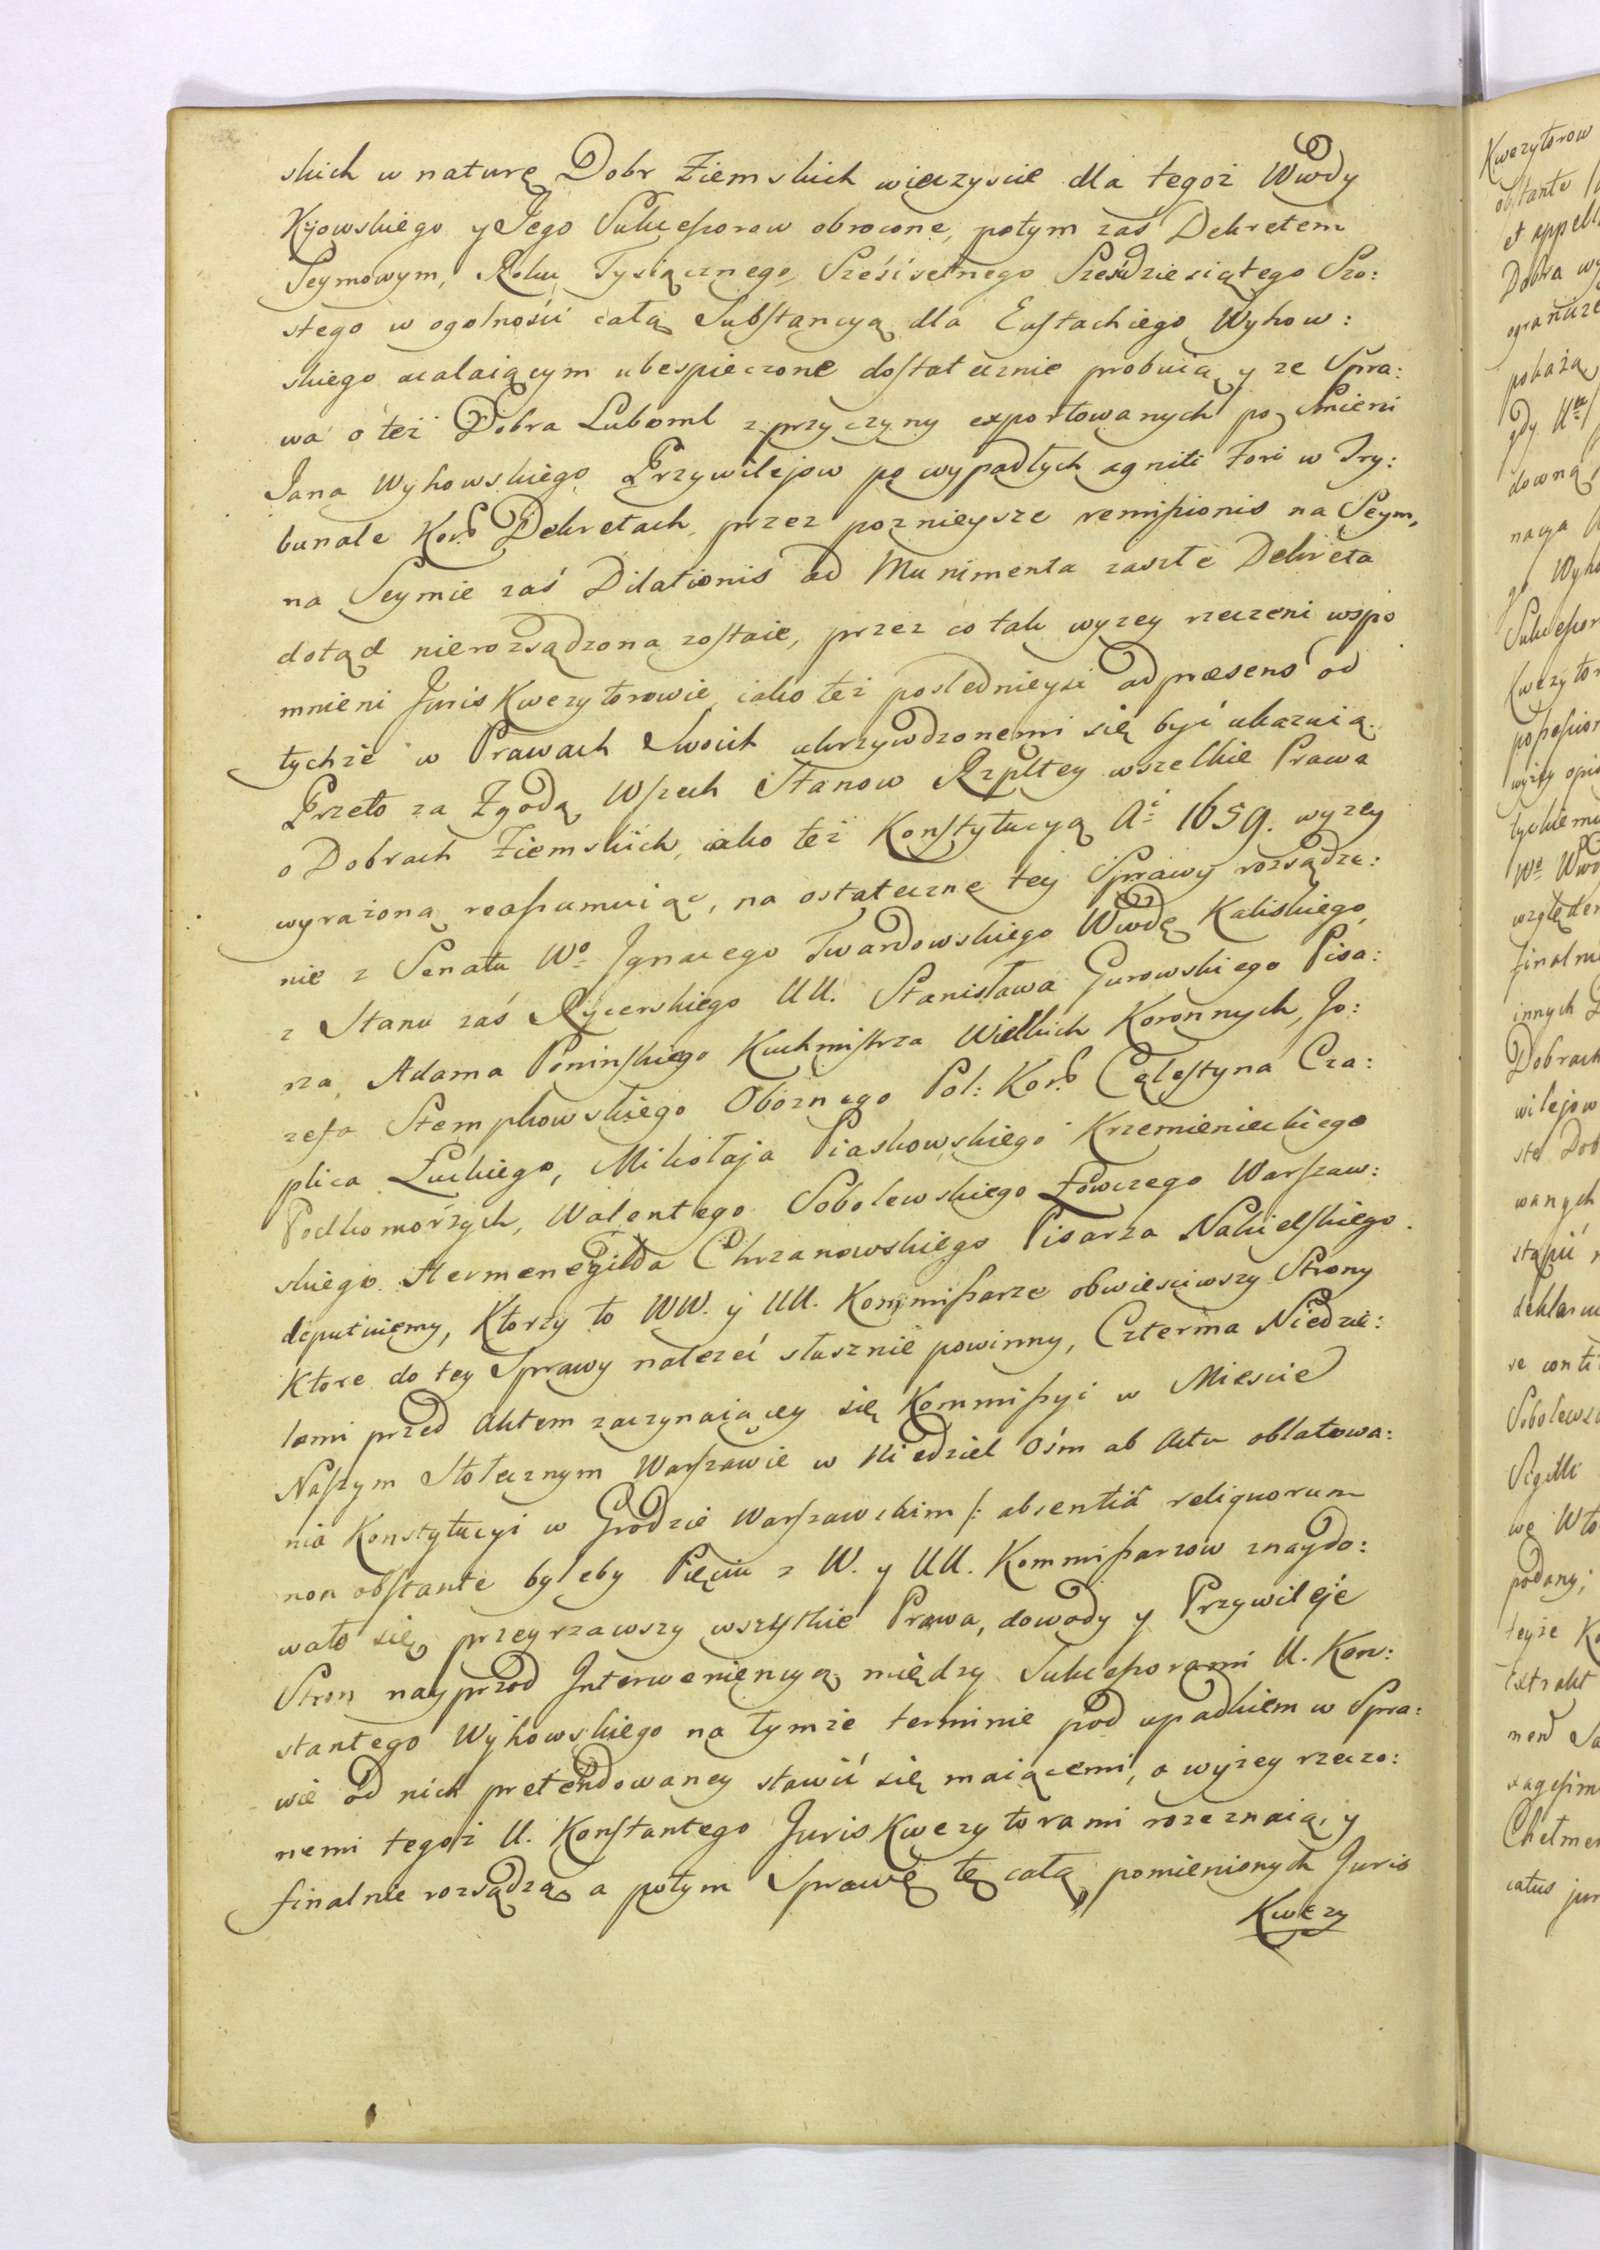 skich w naturę Dobr Ziemskich wieczyscie dla tegoż Wwdy
Kyowskiego y Jego Sukceßorow obrocone, potym zaś Dekretem
Seymowym, Roku Tysiącznego, Sześćsetnego Sześdziesiątego Szo:
stego w ogolności całą Substancyą dla Eustachiego Wyhow:
skiego ocalaiącym ubespieczone dostatecznie probuią, y ze Spra:
wa o też Dobra Luboml z przyczyny exportowanych po Smierci
Jana Wyhowskiego Przywilejow po wypadłych agniti Fori w Try:
bunale Kor: Dekretach, przez poznieysze remißionis na Seym,
na Seymie zaś Dilationis ad Munimenta zaszłe Dekreta
dotąd nierozsądzona zostaie, przez co tak wyzey rzeczeni wspo
mnieni Juris Kwezytorowie, iako też poslednieysi ad præsens od
tychże w Prawach Swoich ukrzywdzonemi się być ukazuią.
Przeto za Zgodą Wszech Stanow Rzpltey wszelkie Prawa
o Dobrach Ziemskich, iako też Konstytucyą Aí 1659. wyzey
wyrażoną reaßumuiąc, na ostateczne tey Sprawy rozsądze:
nie z Senatu Wo Jgnacego Twardowskiego Wwdę Kaliskiego,
z Stanu zaś Rycerskiego UU. Stanisława Gurowskiego Pisa:
rza, Adama Poninskiego Kuchmistrza Wielkich Koronnych, Jo:
zefa Stempkowskiego Oboznego Pol: Kor: Cęlestyna Cza:
plica Łuckiego, Mikołaja Piaskowskiego Krzemienieckiego
Podkomorzych, Walentego Sobolewskiego Łowczego Warszaw:
skiego. Hermenegilda Chrzanowskiego Pisarza Nakielskiego.
deputuiemy, Ktorzy to WW. y UU. Kommißarze obwiesciwszy Strony
Ktore do tey Sprawy nalezeć słusznie powinny, Czterma Niedzie:
lami przed Aktem zaczynaiącey się Kommißyi w Miescie
Naszym Stołecznym Warszawie w Niedziel Ośm ab Actu oblatowa:
nia Konstytucyi w Grodzie Warszawskim /: absentiâ reliquorum
non obstante byleby Pięciu z W. y UU. Kommißarzow znaydo:
wało się, przeyrzawszy wszystkie Prawa, dowody y Przywileje
Stron nayprzod Jnterwenięncyą między Sukceßorami U. Kon:
stantego Wyhowskiego na tymże terminie pod upadkiem w Spra:
wie od nich pretendowaney stawić się maiącemi, a wyżey rzeczo:
nemi tegoż U. Konstantego Juris Kwezytorami rozeznaią, y
finalnie rozsądzą, a potym Sprawę tę całą pomienionych Juris
Kwezy